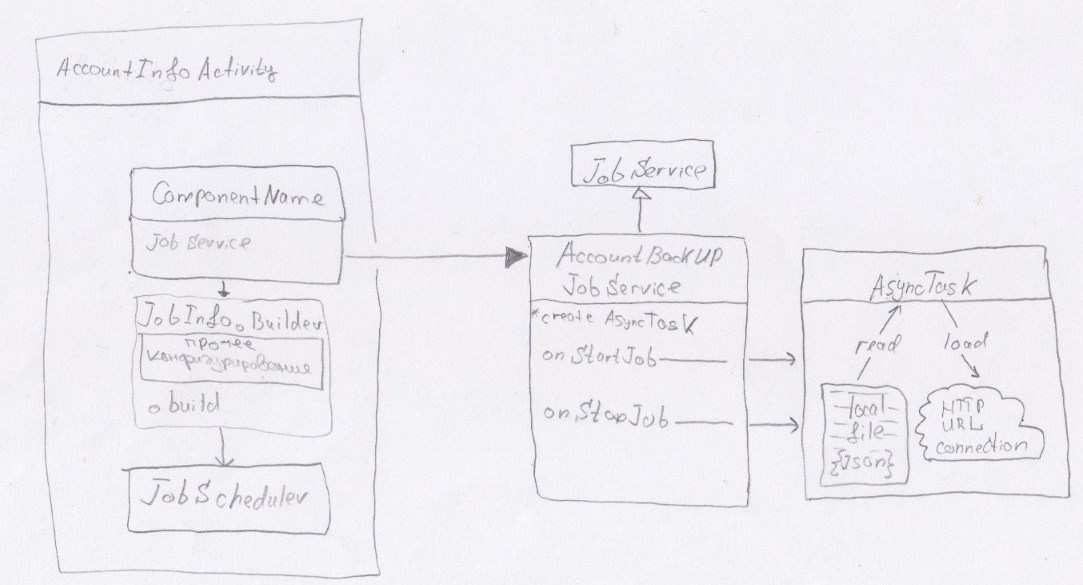 AccountInfo Activity
ComponentName
Job Service
JobInfo.Builder
прочее
конфигурирование
.build
JobScheduler
JobService
AccountBackUP
JobService
*create AsyncTask
onStartJob
onStopJob
AsyncTask
read
load
local
file
{Json}
HTTP
URL
connection